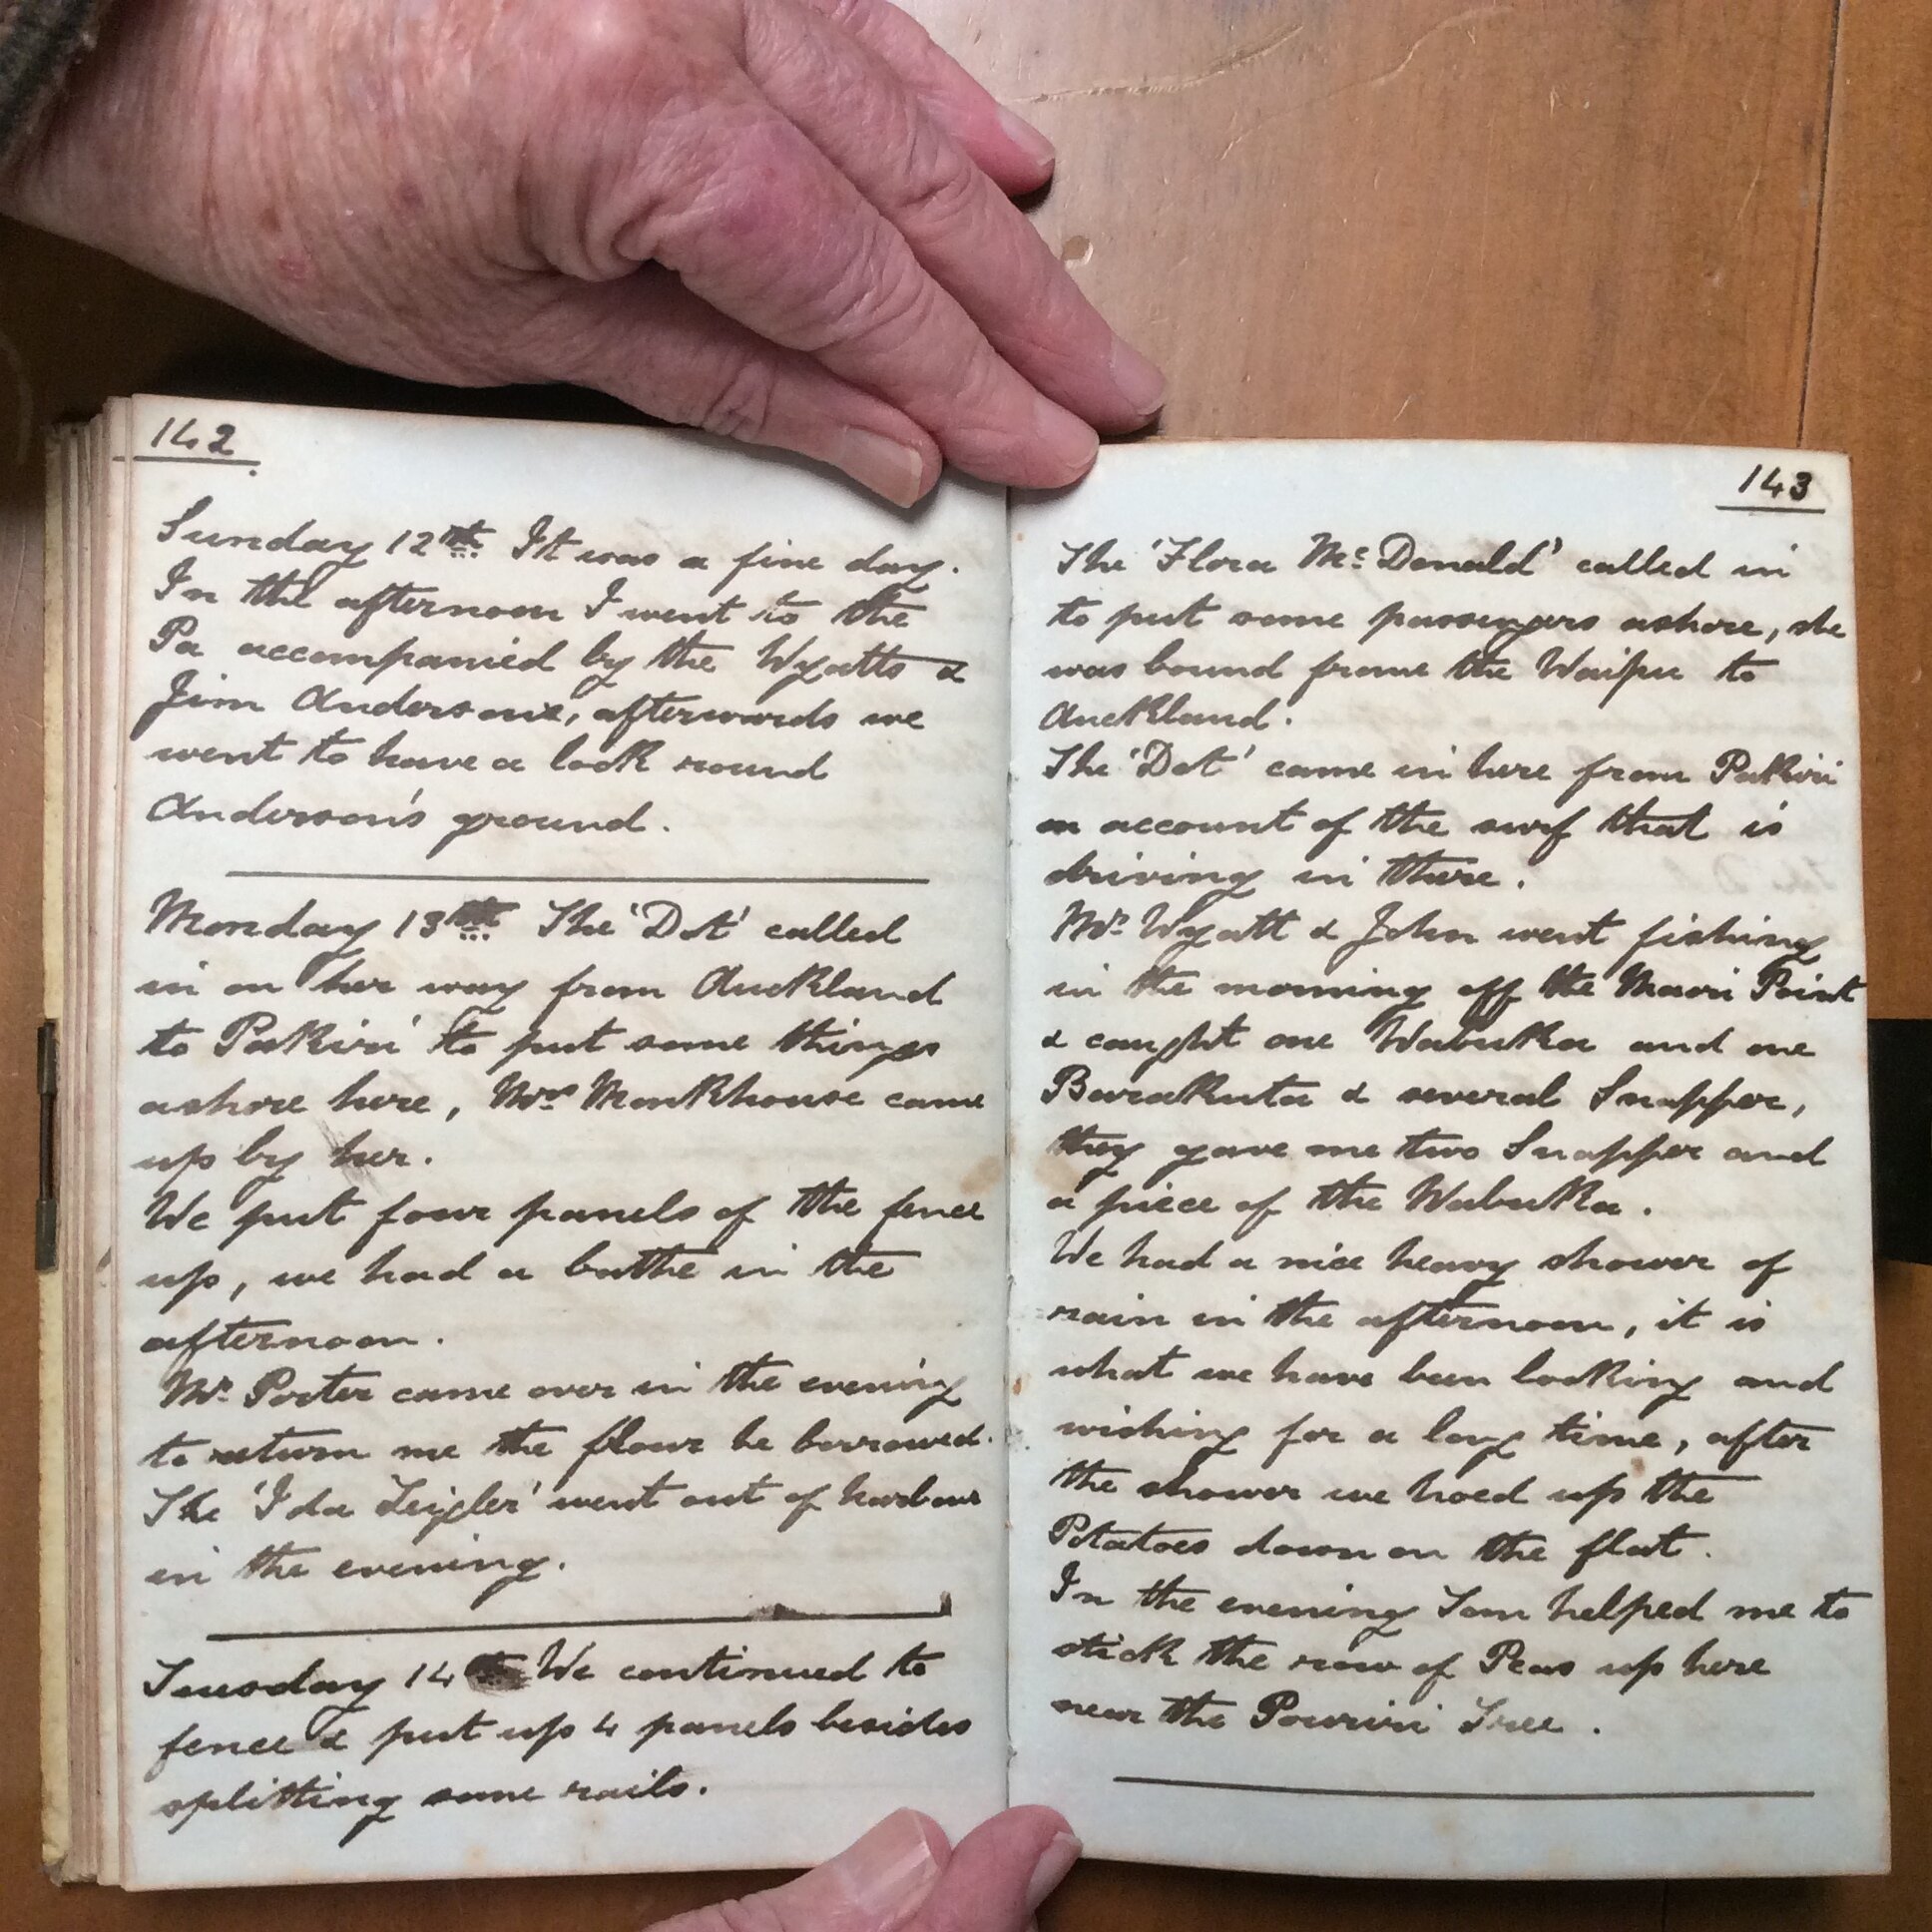 142
Sunday 12th It was a fine day.
In the afternoon I went to the
Pa accompanied by the Wyatts &
Jim Anderson, afterwards we
went to have a look round
Anderson's ground.
Monday 13th The 'Dot' called
in on her way from Auckland
to Pakiri to put some things
ashore here, Mrs Monkhouse came
up by her.
We put four panels of the fence
up, we had a bathe in the
afternoon.
Mr. Porter came over in the evening
to return me the flour he borrowed.
The 'Ida Zeigler' went out of harbour
in the evening.
Tuesday 14th We continued to
fence & put up 4 panels besides
splitting some rails.
143
The 'Flora McDonald' called in
to put some passengers ashore, she
was bound from the Waipu to
Auckland.
The 'Dot' came in here from Pakiri
on account of the surf that is
driving in there.
Mr. Wyatt & John went fishing
in the morning off the Maori Point
& caught one Wabuka and one
Barakuta & several Snapper,
they gave me two Snapper and
a piece of the Wabuka.
We had a nice heavy shower of
rain in the afternoon, it is
what we have been looking and
wishing for a long time, after
the shower we hoed up the
Potatoes down on the flat.
In the evening Tom helped me to
stick the row of Peas up here
near the Pouriri Tree.